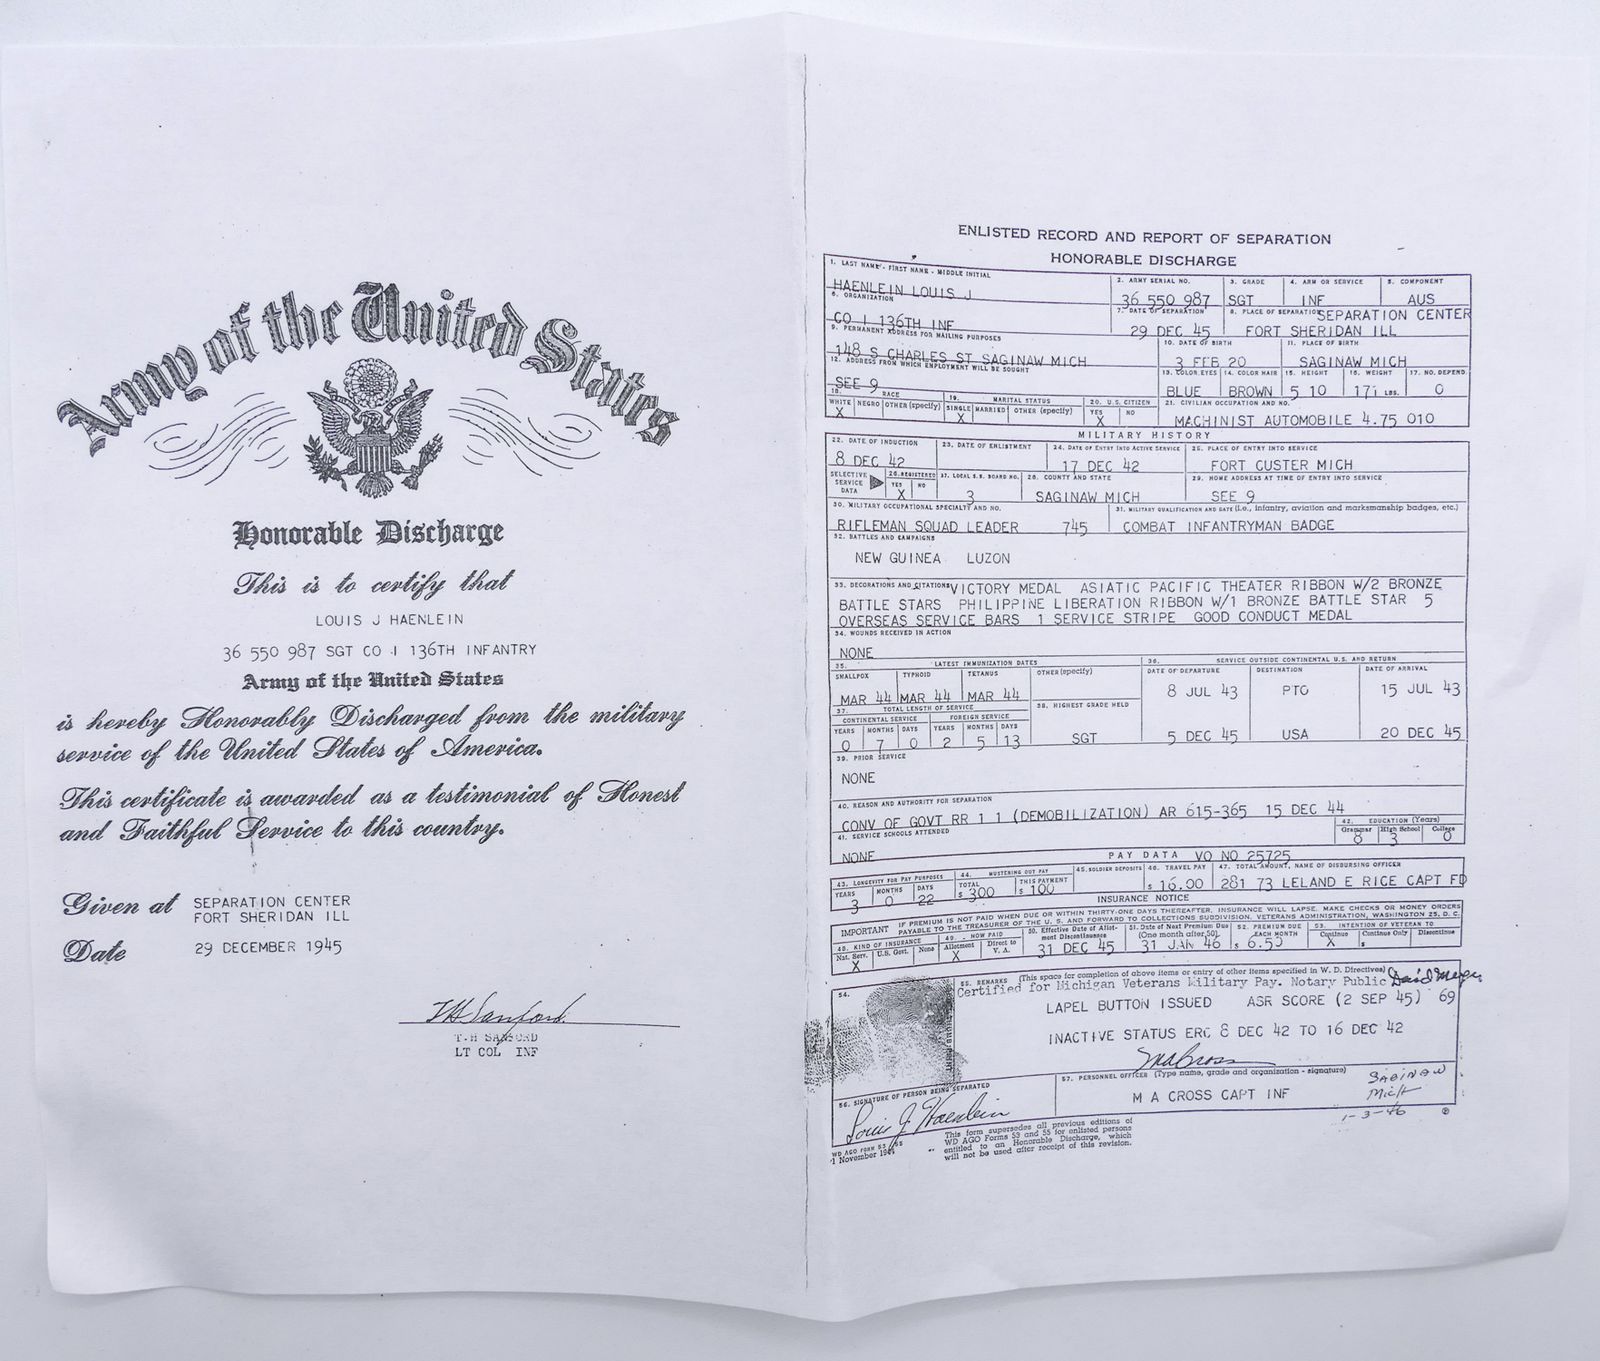 Army of the United States
Honorable Discharge
This is to certify that
LOUIS J HAENLEIN
36 550 987 SGT CO I 136TH INFANTRY
Army of the United States
is hereby Honorably Discharged from the military
service of the United States of America.
This certificate is awarded as a testimonial of Honest
and Faithful Service to this country.
Given at SEPARATION CENTER
FORT SHERIDAN ILL
Date 29 DECEMBER 1945
T H Sanford
T.H SANFORD
LT COL INF
ENLISTED RECORD AND REPORT OF SEPARATION
HONORABLE DISCHARGE
1. LAST NAME - FIRST NAME - MIDDLE INITIAL 2. ARMY SERIAL NO. 3. GRADE 4. ARM OR SERVICE 5. COMPONENT
HAENLEIN LOUIS J 36 550 987 SGT INF AUS
6. ORGANIZATION 7. DATE OF SEPARATION 8. PLACE OF SEPARATION SEPARATION CENTER
CO I 136TH INF 29 DEC 45 FORT SHERIDAN ILL
9. PERMANENT ADDRESS FOR MAILING PURPOSES 10. DATE OF BIRTH 11. PLACE OF BIRTH
148 S CHARLES ST SAGINAW MICH 3 FEB 20 SAGINAW MICH
12. ADDRESS FROM WHICH EMPLOYMENT WILL BE SOUGHT 13. COLOR EYES 14. COLOR HAIR 15. HEIGHT 16. WEIGHT 17. NO. DEPEND.
SEE 9 BLUE BROWN 5 10 171 LBS. 0
18. RACE 19. MARITAL STATUS 20. U.S. CITIZEN 21. CIVILIAN OCCUPATION AND NO.
WHITE NEGRO OTHER (specify) SINGLE MARRIED OTHER (specify) YES NO
X X X MACHINIST AUTOMOBILE 4.75 010
MILITARY HISTORY
22. DATE OF INDUCTION 23. DATE OF ENLISTMENT 24. DATE OF ENTRY INTO ACTIVE SERVICE 25. PLACE OF ENTRY INTO SERVICE
8 DEC 42 17 DEC 42 FORT CUSTER MICH
SELECTIVE SERVICE DATA 26. REGISTERED YES NO 27. LOCAL S.S. BOARD NO. 28. COUNTY AND STATE 29. HOME ADDRESS AT TIME OF ENTRY INTO SERVICE
X 3 SAGINAW MICH SEE 9
30. MILITARY OCCUPATIONAL SPECIALTY AND NO. 31. MILITARY QUALIFICATION AND DATE (i.e., infantry, aviation and marksmanship badges, etc.)
RIFLEMAN SQUAD LEADER 745 COMBAT INFANTRYMAN BADGE
32. BATTLES AND CAMPAIGNS
NEW GUINEA LUZON
33. DECORATIONS AND CITATIONS VICTORY MEDAL ASIATIC PACIFIC THEATER RIBBON W/2 BRONZE
BATTLE STARS PHILIPPINE LIBERATION RIBBON W/1 BRONZE BATTLE STAR 5
OVERSEAS SERVICE BARS 1 SERVICE STRIPE GOOD CONDUCT MEDAL
34. WOUNDS RECEIVED IN ACTION
NONE
35. LATEST IMMUNIZATION DATES 36. SERVICE OUTSIDE CONTINENTAL U.S. AND RETURN
SMALLPOX TYPHOID TETANUS OTHER (specify) DATE OF DEPARTURE DESTINATION DATE OF ARRIVAL
MAR 44 MAR 44 MAR 44 8 JUL 43 PTO 15 JUL 43
37. TOTAL LENGTH OF SERVICE 38. HIGHEST GRADE HELD
CONTINENTAL SERVICE FOREIGN SERVICE
YEARS MONTHS DAYS YEARS MONTHS DAYS
0 7 0 2 5 13 SGT 5 DEC 45 USA 20 DEC 45
39. PRIOR SERVICE
NONE
40. REASON AND AUTHORITY FOR SEPARATION
CONV OF GOVT RR 1 1 (DEMOBILIZATION) AR 615-365 15 DEC 44
41. SERVICE SCHOOLS ATTENDED 42. EDUCATION (Years)
Grammar High School College
NONE 8 3 0
PAY DATA VO NO 25725
43. LONGEVITY FOR PAY PURPOSES 44. MUSTERING OUT PAY 45. SOLDIER DEPOSITS 46. TRAVEL PAY 47. TOTAL AMOUNT, NAME OF DISBURSING OFFICER
YEARS MONTHS DAYS TOTAL THIS PAYMENT
3 0 22 $ 300 $ 100 $ 16.00 281 73 LELAND E RICE CAPT FD
INSURANCE NOTICE
IMPORTANT IF PREMIUM IS NOT PAID WHEN DUE OR WITHIN THIRTY-ONE DAYS THEREAFTER, INSURANCE WILL LAPSE. MAKE CHECKS OR MONEY ORDERS
PAYABLE TO THE TREASURER OF THE U. S. AND FORWARD TO COLLECTIONS SUBDIVISION, VETERANS ADMINISTRATION, WASHINGTON 25, D. C.
48. KIND OF INSURANCE 49. HOW PAID 50. Effective Date of Allotment Discontinuance 51. Date of Next Premium Due (One month after 50) 52. PREMIUM DUE EACH MONTH 53. INTENTION OF VETERAN TO
Nat. Serv. U.S. Govt. None Allotment Direct to V. A. Continue Continue Only Discontinue
X X 31 DEC 45 31 JAN 46 $ 6.50 X $
54. 55. REMARKS (This space for completion of above items or entry of other items specified in W. D. Directives)
Certified for Michigan Veterans Military Pay. Notary Public
LAPEL BUTTON ISSUED ASR SCORE (2 SEP 45) 69
INACTIVE STATUS ERC 8 DEC 42 TO 16 DEC 42
M A Cross
56. SIGNATURE OF PERSON BEING SEPARATED 57. PERSONNEL OFFICER (Type name, grade and organization - signature)
Louis J Haenlein M A CROSS CAPT INF
SAGINAW
MICH
1-3-46
WD AGO FORM 53 55
1 November 1944
This form supersedes all previous editions of
WD AGO Forms 53 and 55 for enlisted persons
entitled to an Honorable Discharge, which
will not be used after receipt of this revision.